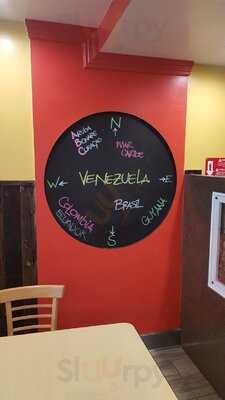 N
ARUBA
BONAIRE
CURAÇAO
MAR
CARIBE
W
VENEZUELA
E
COLOMBIA
ECUADOR
BRASIL
GUYANA
S
sluurpy